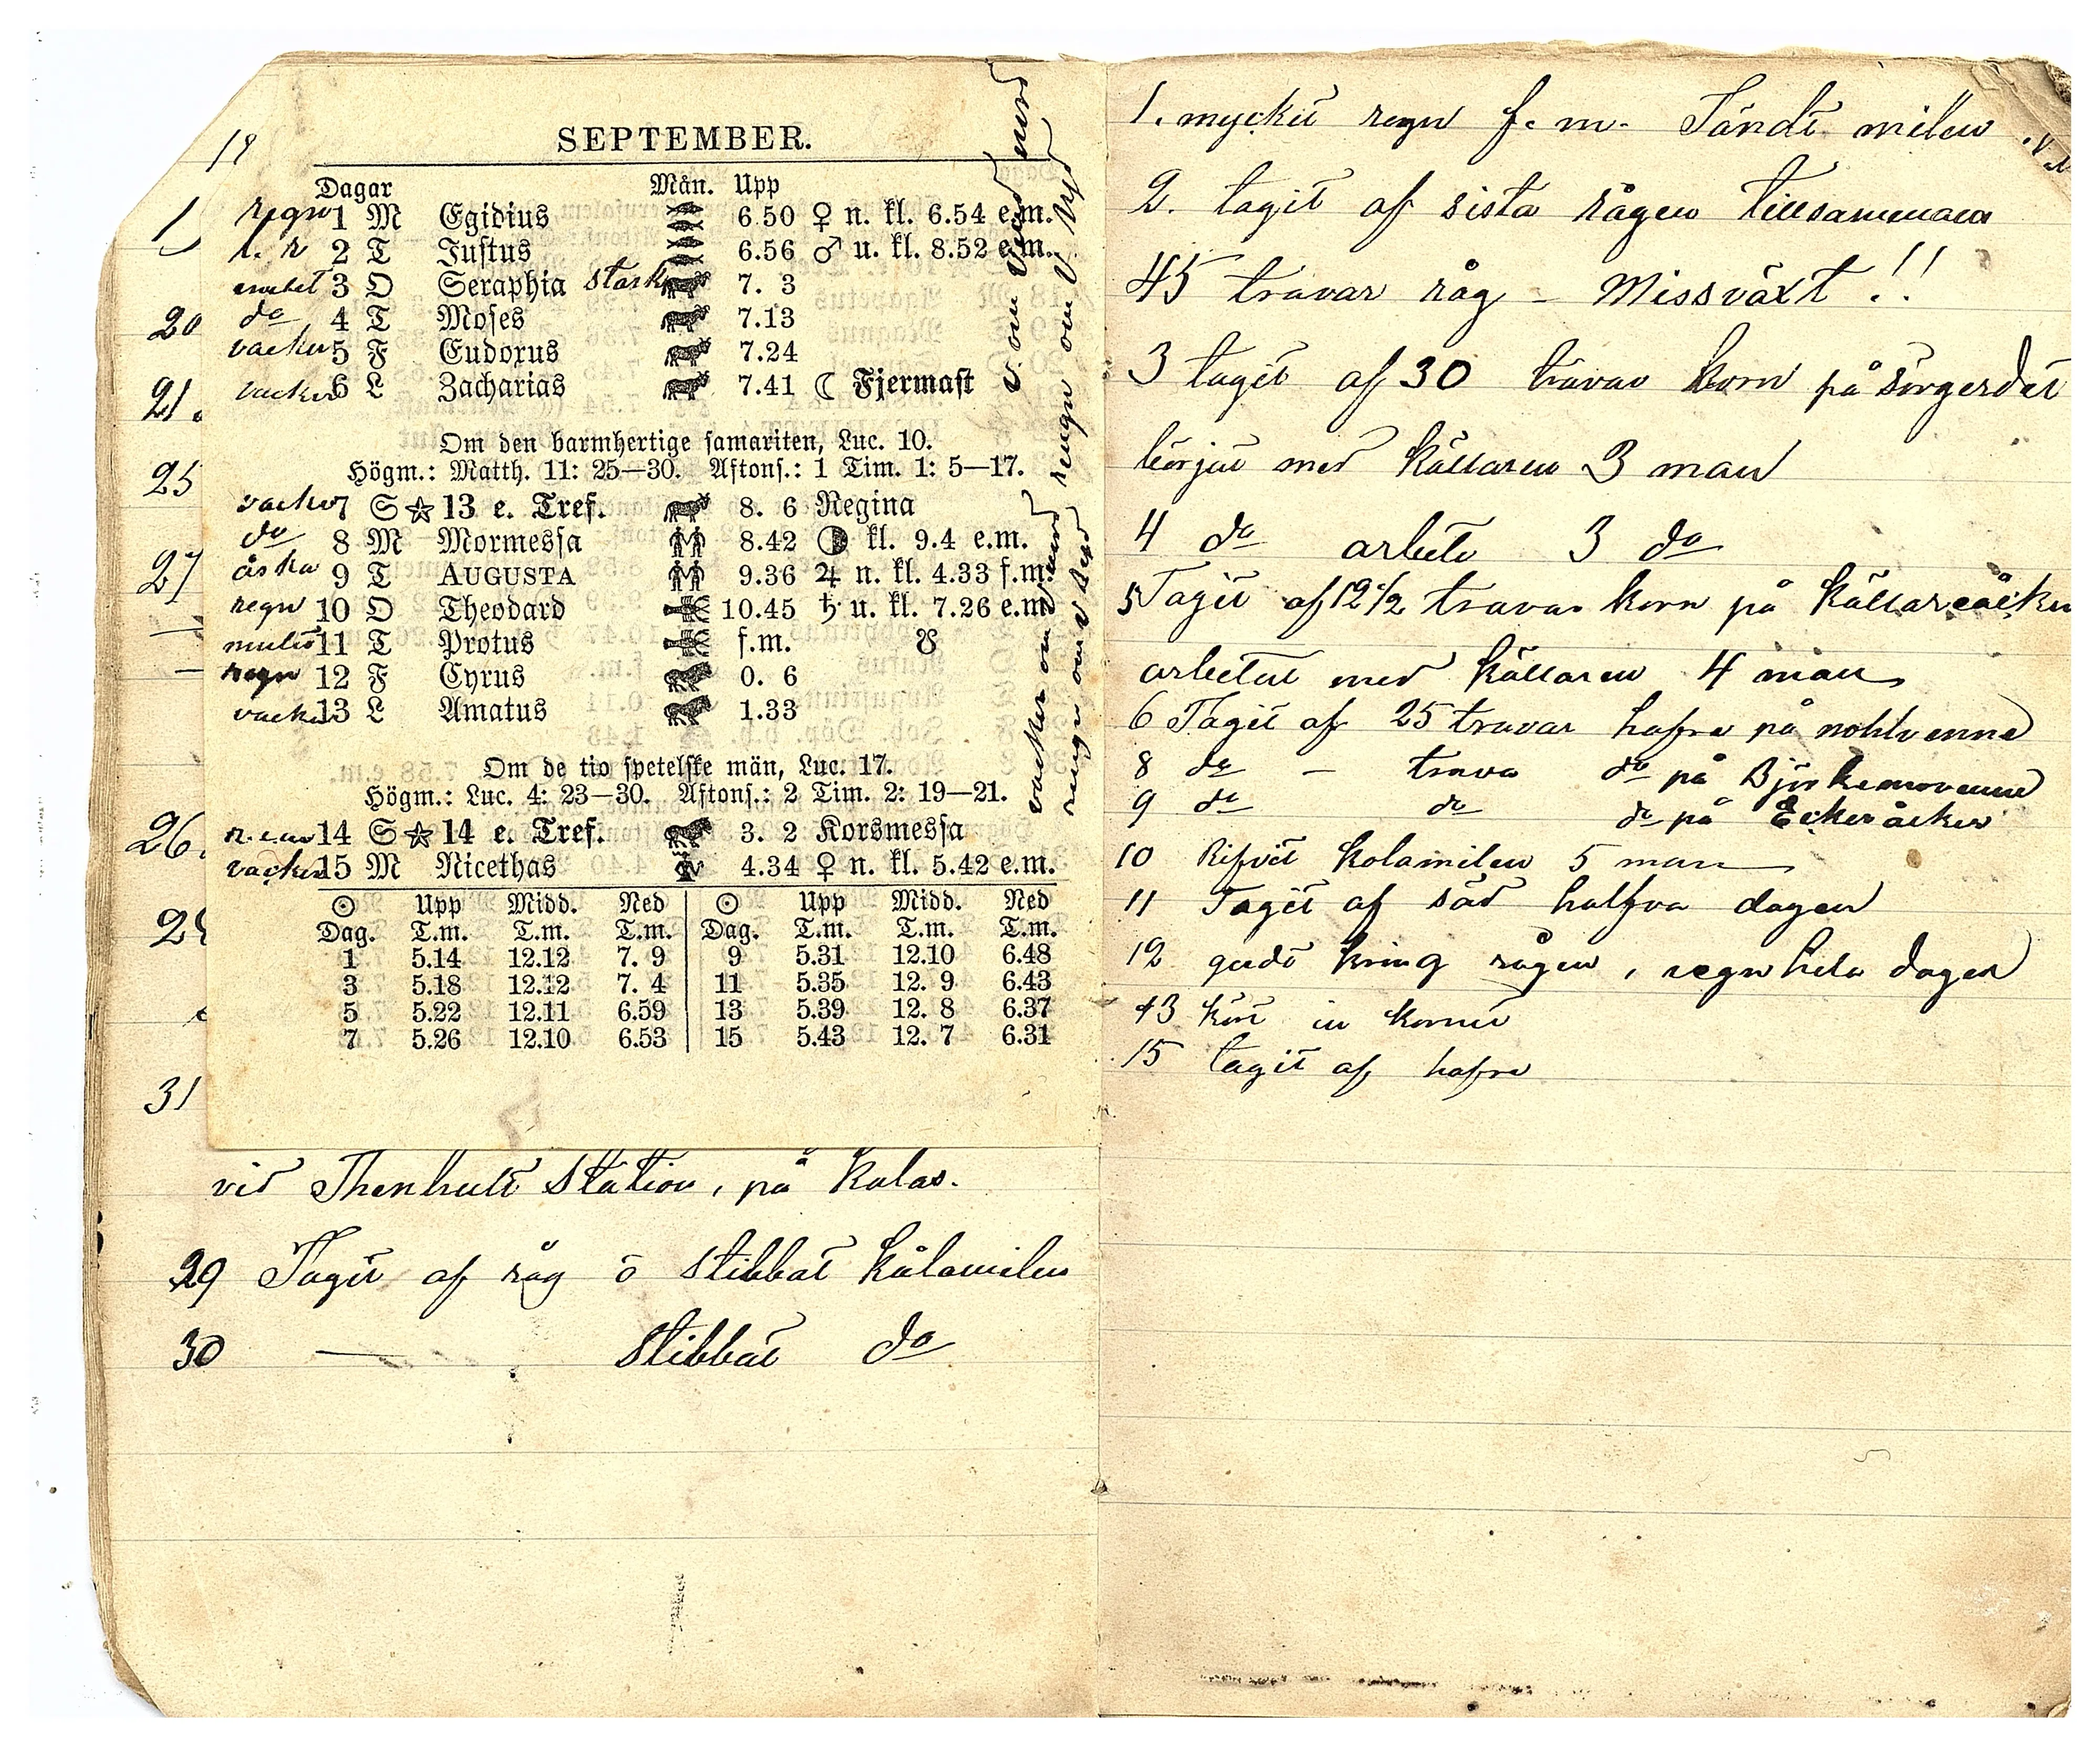 18
SEPTEMBER.
Dagar Mån. Upp
1 regn 1 M Egidius 6.50 ♀ n. kl. 6.54 e.m.
l. r 2 T Justus 6.56 ♂ u. kl. 8.52 e.m.
3 O Seraphia stark 7. 3
20 do 4 T Moses 7.13
vacker 5 F Eudoxus 7.24
21. vacker 6 L Zacharias 7.41 ☾ Fjermast
Om den barmhertige samariten, Luc. 10.
25 Högm.: Matth. 11: 25—30. Aftons.: 1 Tim. 1: 5—17.
vacker 7 S ☆ 13 e. Tref. 8. 6 Regina
do 8 M Mormessa 8.42 kl. 9.4 e.m.
27 åska 9 T AUGUSTA 9.36 ♃ n. kl. 4.33 f.m.
regn 10 O Theodard 10.45 ♄ u. kl. 7.26 e.m.
mulet 11 T Protus f.m. ☋
regn 12 F Cyrus 0. 6
vacker 13 L Amatus 1.33
Om de tio spetelske män, Luc. 17.
Högm.: Luc. 4: 23—30. Aftons.: 2 Tim. 2: 19—21.
26. 14 S ☆ 14 e. Tref. 3. 2 Korsmessa
vacker 15 M Nicethas 4.34 ♀ n. kl. 5.42 e.m.
☉ Upp Midd. Ned ☉ Upp Midd. Ned
Dag. T.m. T.m. T.m. Dag. T.m. T.m. T.m.
1 5.14 12.12 7. 9 9 5.31 12.10 6.48
3 5.18 12.12 7. 4 11 5.35 12. 9 6.43
5 5.22 12.11 6.59 13 5.39 12. 8 6.37
7 5.26 12.10 6.53 15 5.43 12. 7 6.31
31
vid Thenhult Station, på Kalas.
29 Tagit af råg o stibbat kålamilen
30 — stibbat do
1. mycket regn f. m. Tändt milen
2. tagit af sista rågen tillsammans
45 travar råg - Missväxt !!
3 tagit af 30 travar korn på sörgerdet
börjat med källaren 3 man
4 do arbete 3 do
5 Tagit af 12 1/2 travar korn på källareåcker
arbetat med källaren 4 man
6 Tagit af 25 travar hafre på nohlvenne
8 do — trava do på
9 do do do på Eckeråcker
10 Rifvit kolamilen 5 man
11 Tagit af säd halfva dagen
12 kring rågen, regn hela dagen
13 kört in kornet
15 tagit af hafre